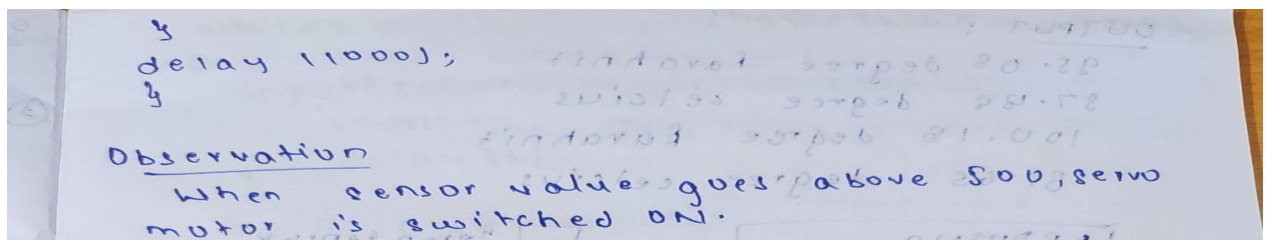 }
delay (1000);
}
Observation
When sensor value goes above 500, servo
motor is switched ON.